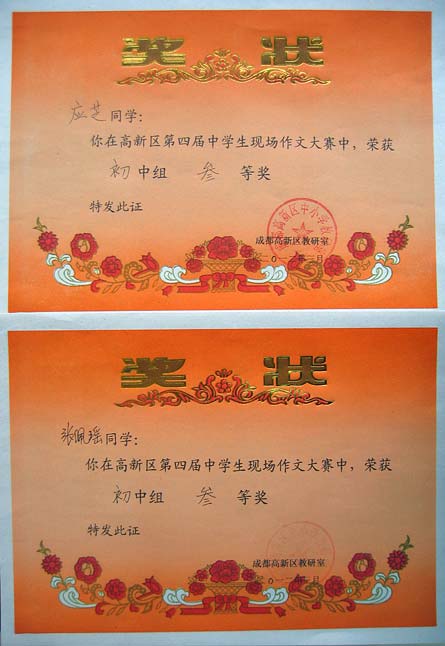 奖状
应芝同学：
你在高新区第四届中学生现场作文大赛中，荣获
初中组 叁 等奖
特发此证
成都高新区教研室
奖状
张佩瑶同学：
你在高新区第四届中学生现场作文大赛中，荣获
初中组 叁 等奖
特发此证
成都高新区教研室